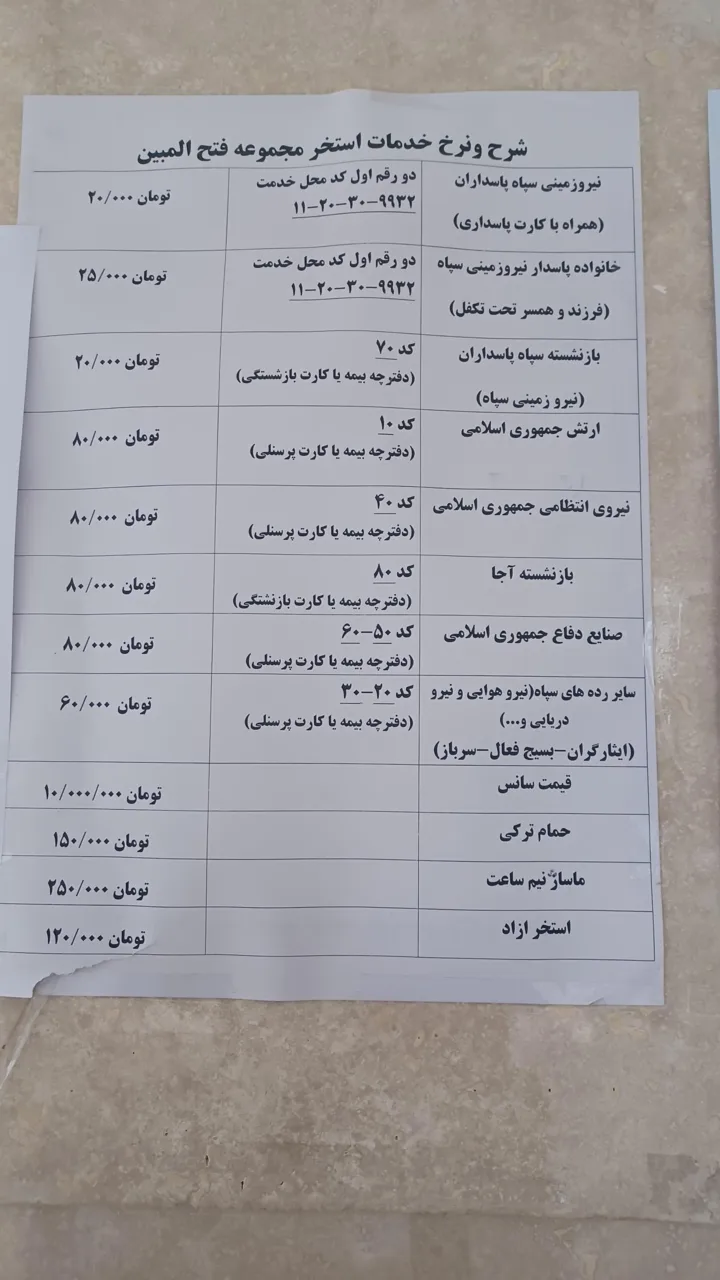 شرح ونرخ خدمات استخر مجموعه فتح المبین
نیروزمینی سپاه پاسداران
(همراه با کارت پاسداری)
دو رقم اول کد محل خدمت
۱۱-۲۰-۳۰-۹۹۳۲
۲۰/۰۰۰ تومان
خانواده پاسدار نیروزمینی سپاه
(فرزند و همسر تحت تکفل)
دو رقم اول کد محل خدمت
۱۱-۲۰-۳۰-۹۹۳۲
۲۵/۰۰۰ تومان
بازنشسته سپاه پاسداران
(نیرو زمینی سپاه)
کد ۷۰
(دفترچه بیمه یا کارت بازشستگی)
۲۰/۰۰۰ تومان
ارتش جمهوری اسلامی
کد ۱۰
(دفترچه بیمه یا کارت پرسنلی)
۸۰/۰۰۰ تومان
نیروی انتظامی جمهوری اسلامی
کد ۴۰
(دفترچه بیمه یا کارت پرسنلی)
۸۰/۰۰۰ تومان
بازنشسته آجا
کد ۸۰
(دفترچه بیمه یا کارت بازنشتگی)
۸۰/۰۰۰ تومان
صنایع دفاع جمهوری اسلامی
کد ۵۰-۶۰
(دفترچه بیمه یا کارت پرسنلی)
۸۰/۰۰۰ تومان
سایر رده های سپاه(نیرو هوایی و نیرو
دریایی و...)
(ایثارگران-بسیج فعال-سرباز)
کد ۲۰-۳۰
(دفترچه بیمه یا کارت پرسنلی)
۶۰/۰۰۰ تومان
قیمت سانس
۱۰/۰۰۰/۰۰۰ تومان
حمام ترکی
۱۵۰/۰۰۰ تومان
ماساژ نیم ساعت
۲۵۰/۰۰۰ تومان
استخر ازاد
۱۲۰/۰۰۰ تومان